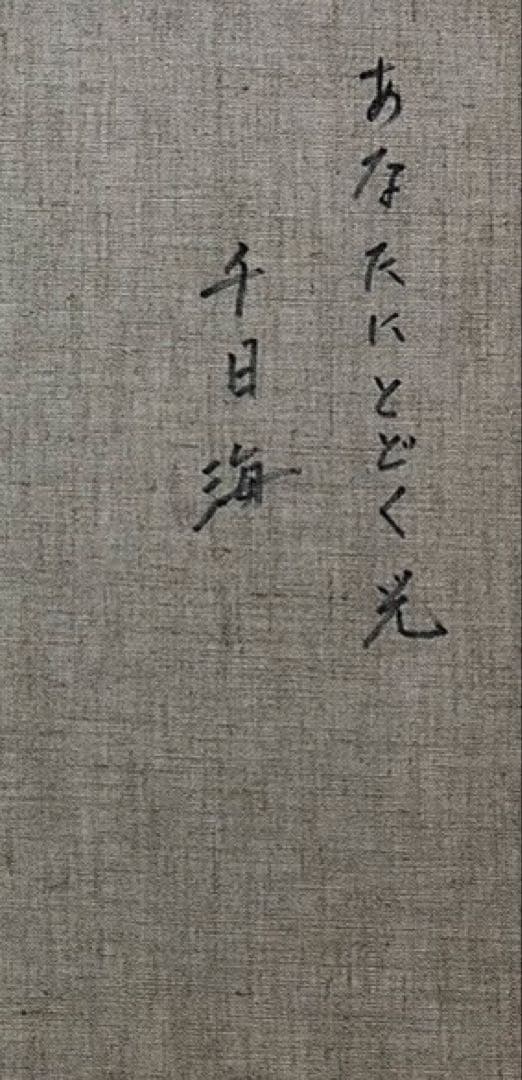 あなたにとどく光
千日海